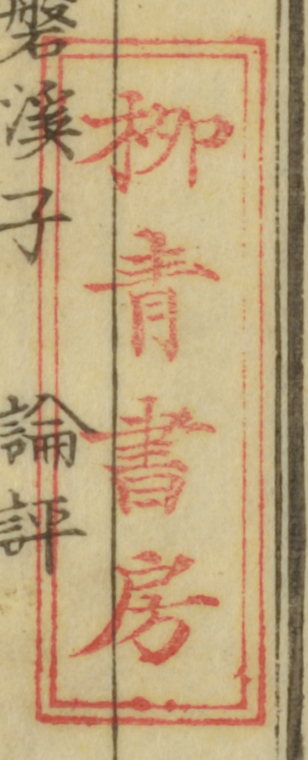 柳青書房
磐溪子 論評